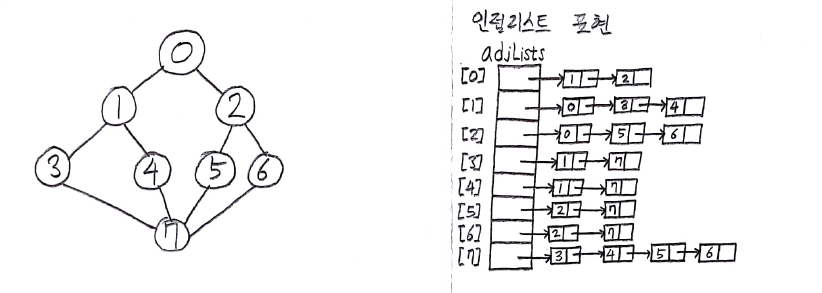 0
1 2
3 4 5 6
7
인접리스트 표현
adjLists
[0] 1 2
[1] 0 3 4
[2] 0 5 6
[3] 1 7
[4] 1 7
[5] 2 7
[6] 2 7
[7] 3 4 5 6